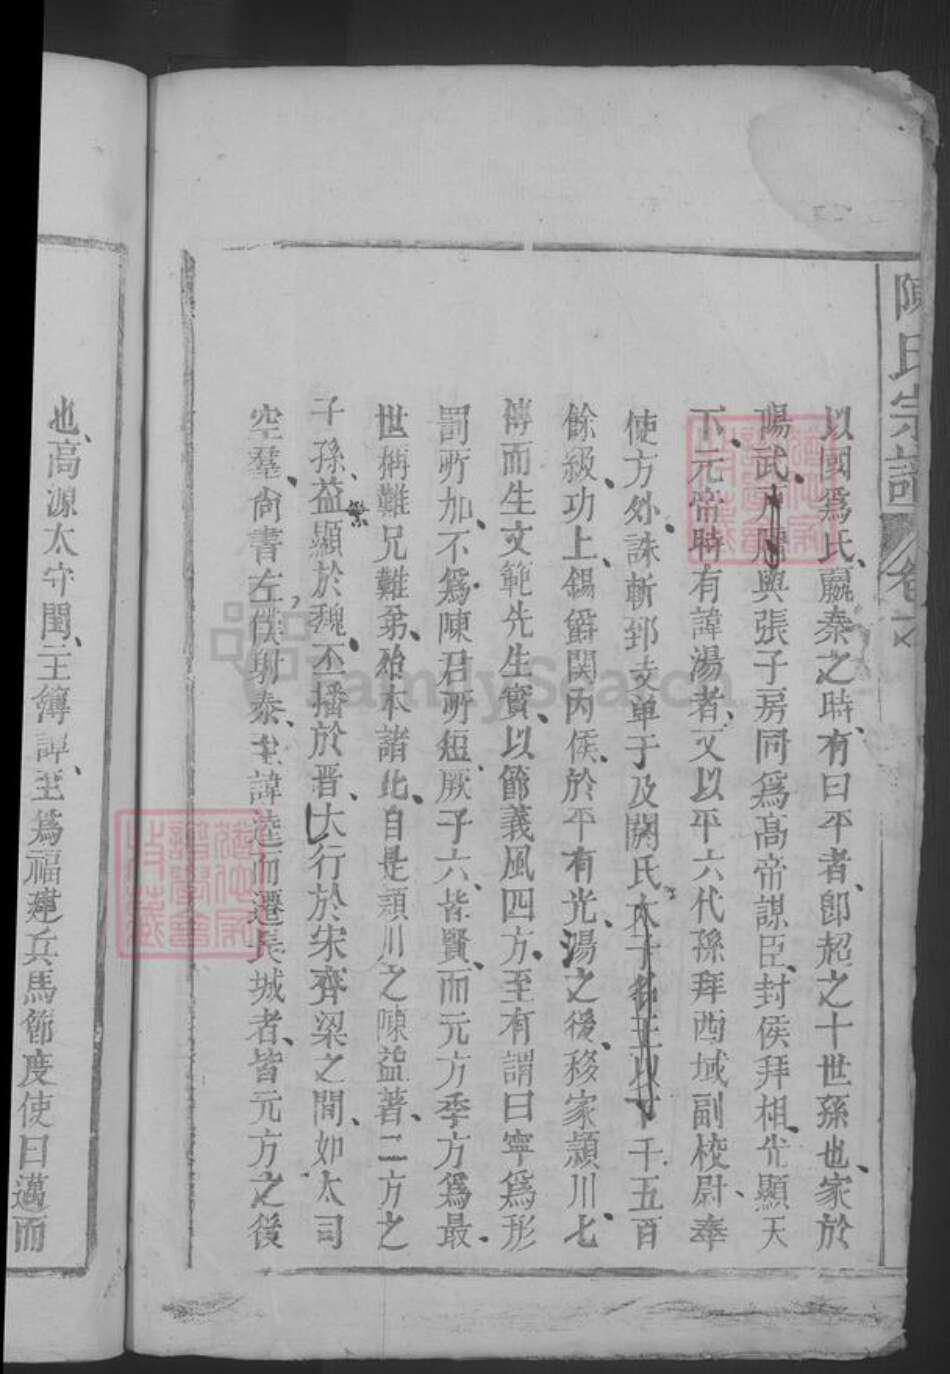 陳氏宗譜 卷之
以國爲氏嬴秦之時有曰平者卽超之十世孫也家於
陽武戶牖與張子房同爲高帝謀臣封侯拜相光顯天
下元帝時有諱湯者又以平六代孫拜西域副校尉奉
使方外誅斬郅支单于及閼氏太子名王以下千五百
餘級功上錫爵関內侯於平有光湯之後移家潁川七
傳而生文範先生實以節義風四方至有謂曰寧爲形
罰所加不爲陳君所短厥子六皆賢而元方季方爲最
世稱難兄難弟殆本諸此自是潁川之陳益著二方之
子孫益顯於魏丕播於晋大行於宋齊梁之間如太司
空羣尚書左僕射泰主諱逵而遷長城者皆元方之後
也高源太守閏主簿諱至爲福建兵馬節度使曰邁而